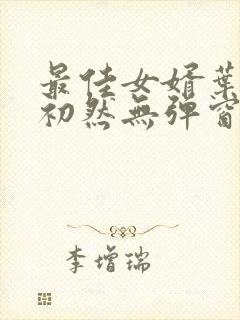 最佳女婿葉
初然無彈窗
李增瑞